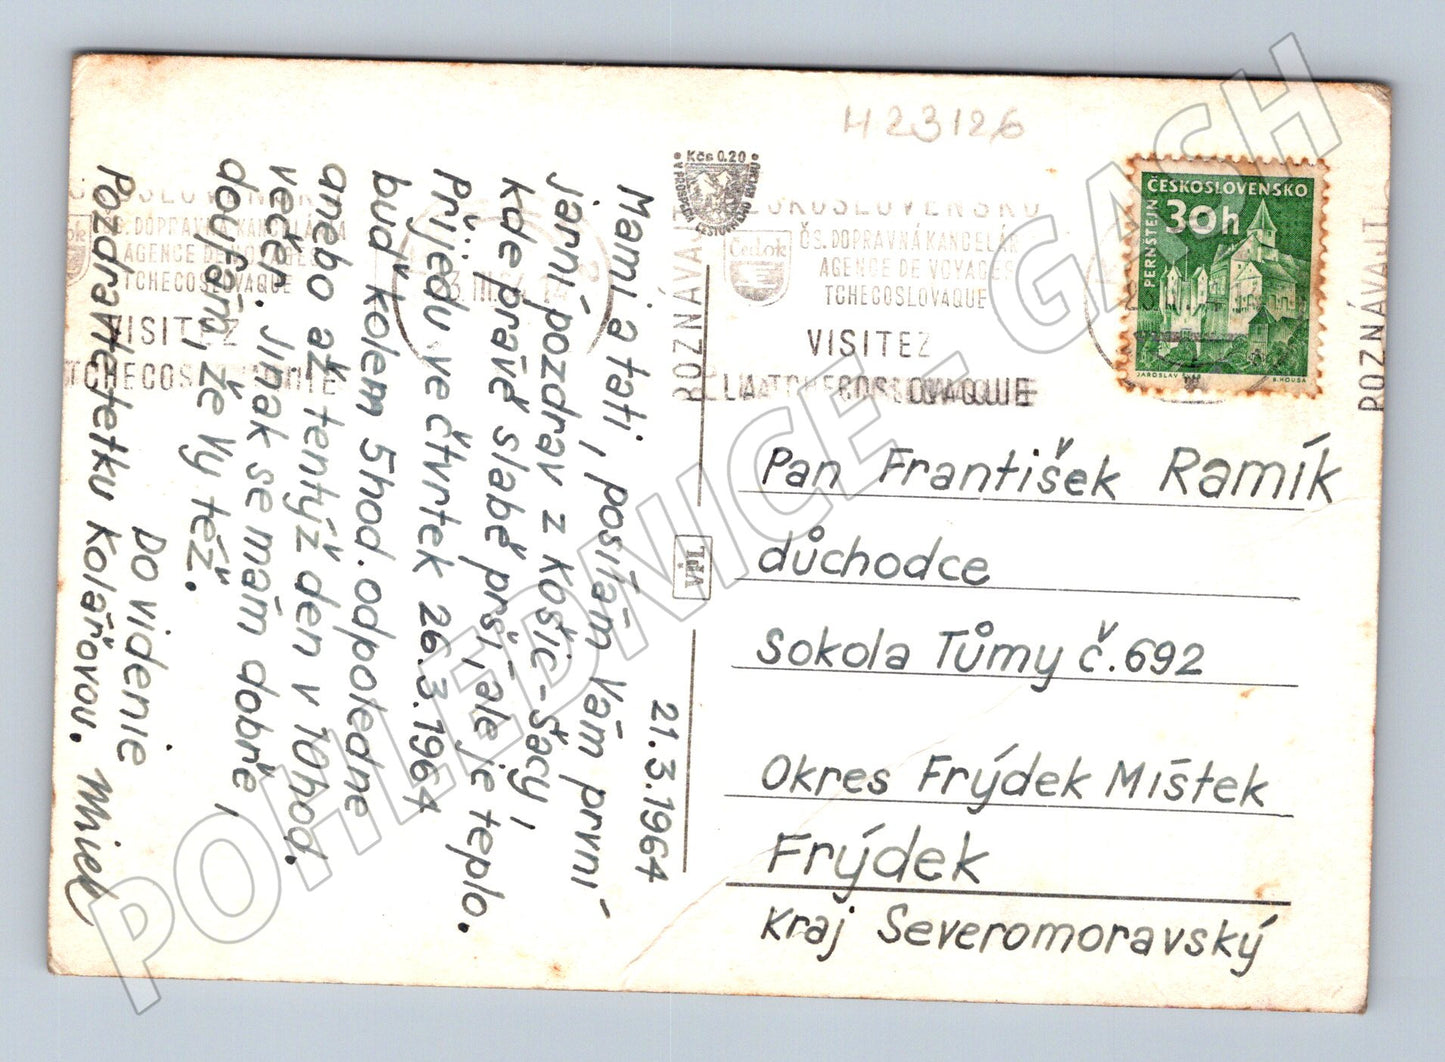 H23126
Kčs 0.20
21.3.1964
Mami a tati, posílám Vám první
jarní pozdrav z Košic-Šacy,
kde právě slabě prší, ale je teplo.
Přijedu ve čtvrtek 26.3.1964
buď kolem 5hod. odpoledne
anebo až tentýž den v 10hod.
večer. Jinak se mám dobře,
doufám, že Vy též.
Do videnie
Pozdravte tetku Kolářovou.
ČESKOSLOVENSKO
ČS. DOPRAVNÁ KANCELÁRIA
AGENCE DE VOYAGES
TCHECOSLOVAQUE
VISITEZ
Čedok
ČS. DOPRAVNÁ KANCELÁR
AGENCE DE VOYAGES
TCHECOSLOVAQUE
VISITEZ
POZNÁVAJT
ČESKOSLOVENSKO
30h
PERNŠTEJN
Tisk
Pan František Ramík
důchodce
Sokola Tůmy č.692
Okres Frýdek Místek
Frýdek
Kraj Severomoravský
POHLEDNICE - GASH